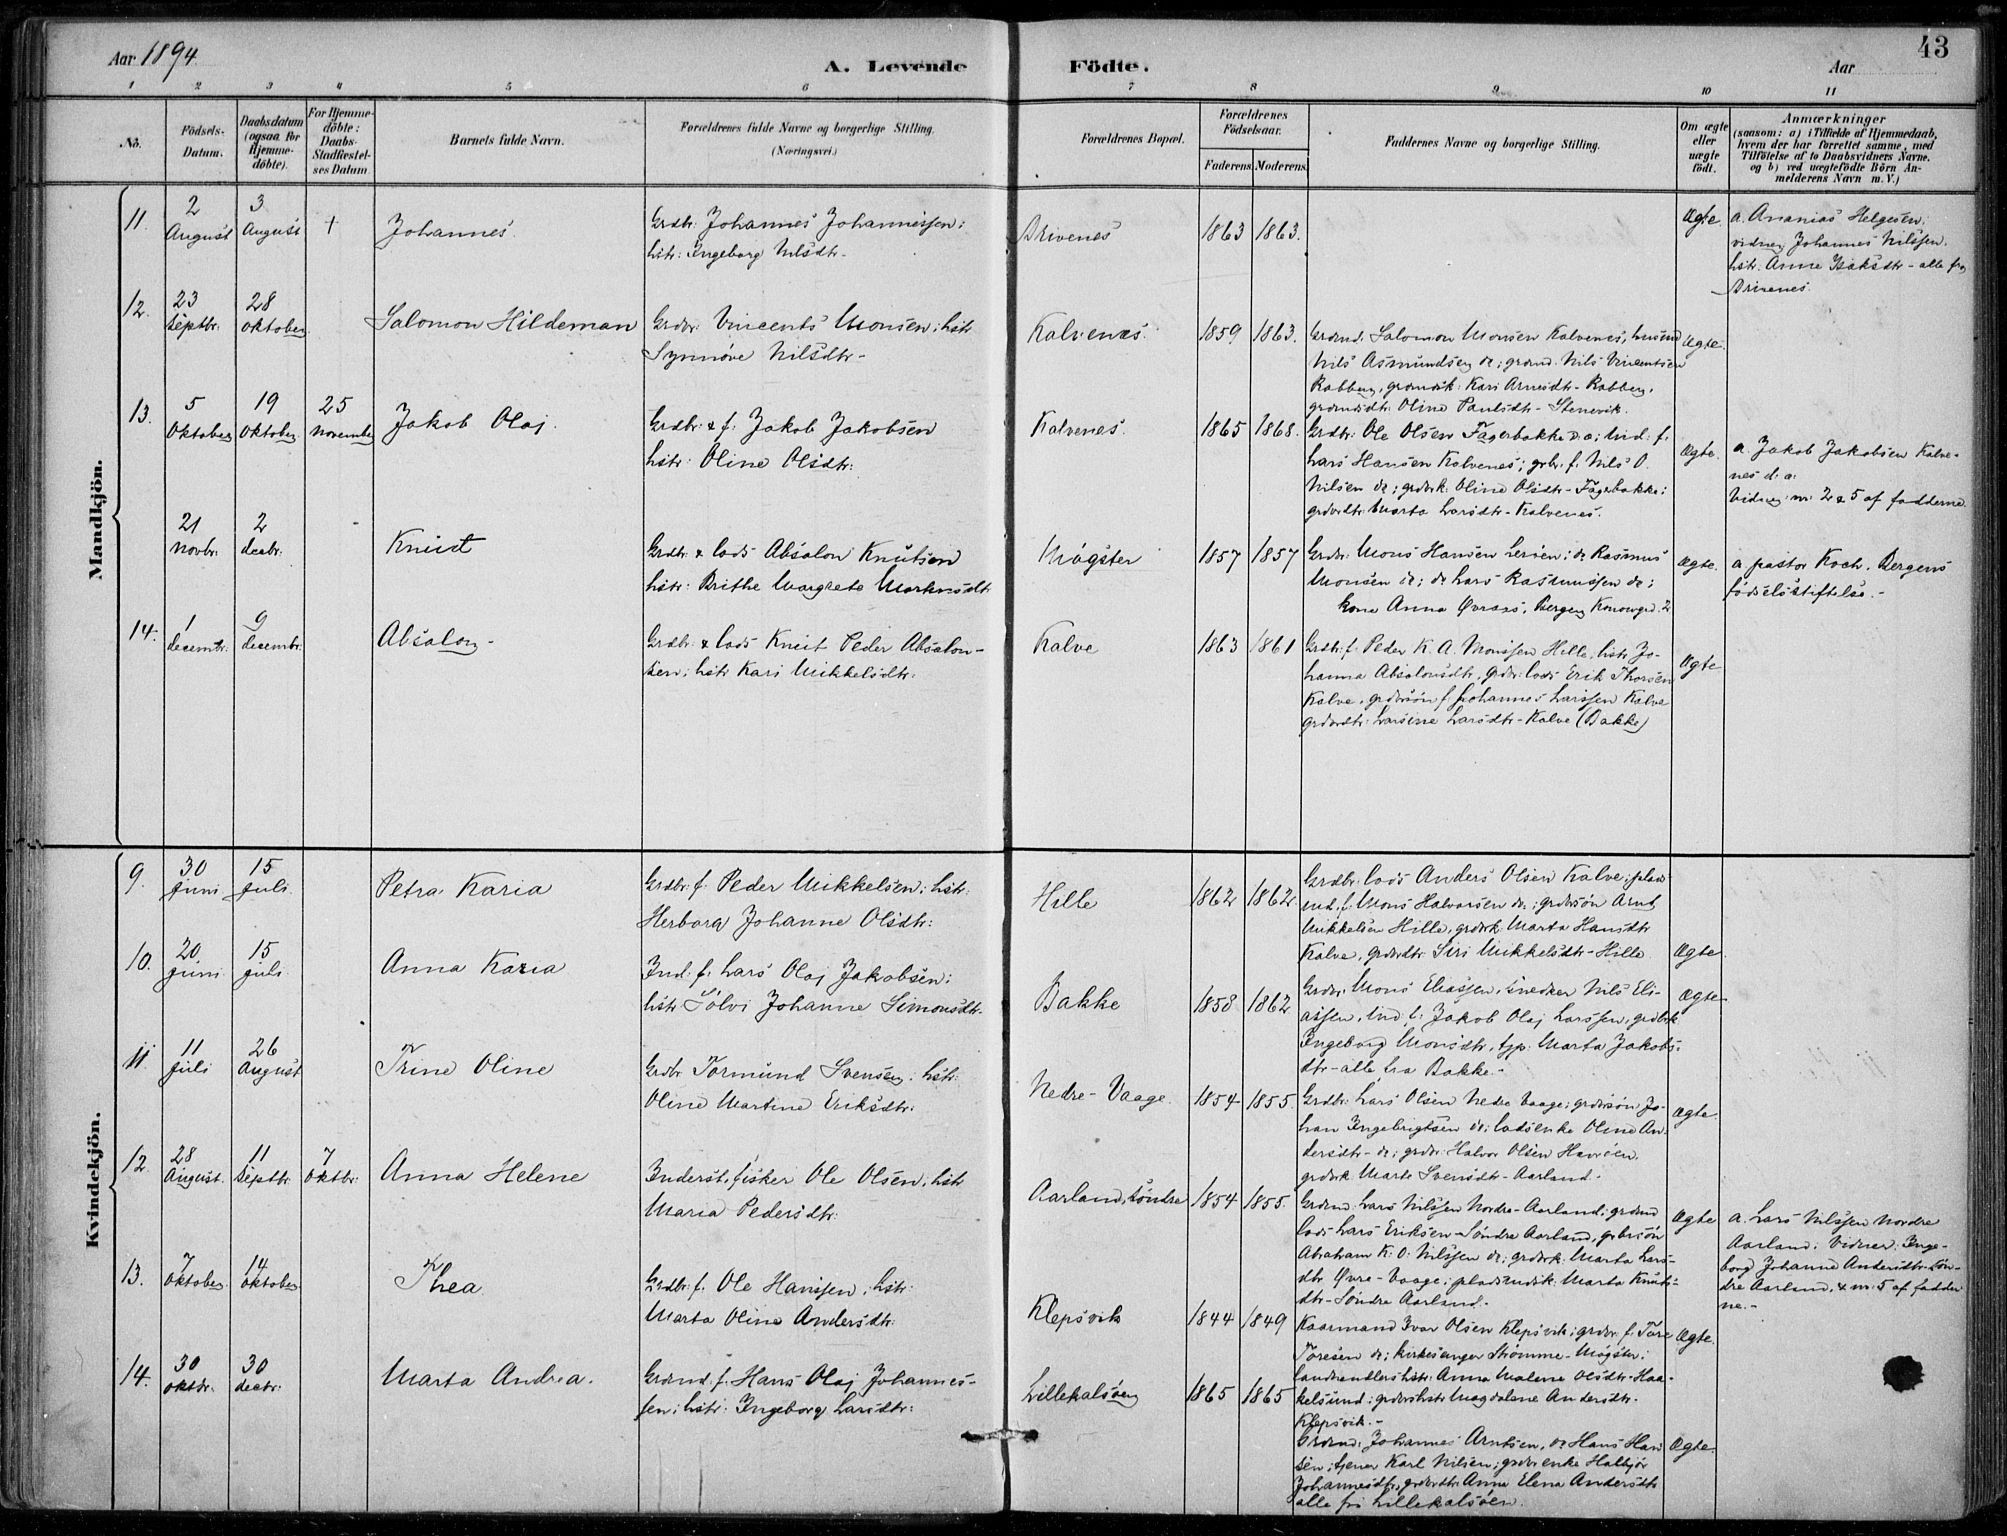 Aar 1894.
A. Levende Födte.
Aar
43
1 2 3 4 5 6 7 8 9 10 11
No.
Födsels-Datum.
Daabsdatum (ogsaa for Hjemme-döbte).
For Hjemme-döbte: Daabs-Stadfæstel-ses Datum
Barnets fulde Navn.
Forældrenes fulde Navne og borgerlige Stilling.
(Næringsvei.)
Forældrenes Bopæl.
Forældrenes Födselsaar.
Faderens. Moderens.
Faddernes Navne og borgerlige Stilling.
Om ægte eller uægte födt.
Anmærkninger
(saasom: a) i Tilfælde af Hjemmedaab,
hvem der har forrettet samme, med
Tilföielse af to Daabsvidners Navne.
og b) ved uægtefödte Börn An-
melderens Navn m. V.)
Mandkjön.
11. 2 August 3 August + Johannes.
Grdbr: Johannes Johannessen;
hstr: Ingeborg Nilsdtr.
Drivenes 1863 1863. Ægte.
a. Ananias Helgesen;
vidner Johannes Nilssen.
hstr: Anne Isaksdtr - alle fra
Drivenes
12. 23 Septbr: 28 Oktober Salomon Hildeman
Grdbr: Vincents Monsen; hstr
Synnöve Nilsdtr-
Kalvenes. 1859 1863.
Grdmd. Salomon Monsen Kalvenes, husmd
Nils Asmundsen ds; grdmd. Nils Vincentsen
Rabben, grdmdsk: Kari Arnesdtr - Rabben,
grdmdsdtr: Oline Paulsdtr - Stenevik.
Ægte.
13. 5 Oktober 19 Oktober. 25 November Jakob Olaj.
Grdbr: & f. Jakob Jakobsen
hstr: Oline Olsdtr:
Kalvenes. 1865 1868.
Grdbr: Ole Olsen Fagerbakke
Lars Hansen Kalvenes; grbr. f. Nils O.
Nilsen ds; grdbrk: Oline Olsdtr - Fagerbakke;
grdbrdtr Marta Larsdtr - Kalvenes.
Ægte.
a. Jakob Jakobsen Kalve-
nes d: a:
Vidner: nr: 2 & 5 af fadderne.
21 Novbr: 2 decbr: Knud
Grdbr: & lods Absalon Knutsen
hstr: Brithe Margrete Markusdtr
Mögster 1857 1857
Grdbr: Mons Hansen Leröen; ds Rasmus
Monsen ds; ds Lars Rasmussen ds;
kone Anna Övraas, Bergen
Ægte.
a pastor Koch. Bergens
födselsstiftelse. -
14. 1 decembr: 9 decembr: Absalon -
Grdbr: & lods Knut Peder Absalon-
sen; hstr Kari Mikkelsdtr:
Kalve 1863 1861
Grdbr: f. Peder K. A. Monssen Hille, hstr Jo-
hanna Absalonsdtr, grdbr: lods Erik Thorsen
Kalve, grdbrsön f. Johannes Larssen Kalve
grdbrdtr: Larsine Larsdtr - Kalve (Bakke)
Ægte
Kvindekjön.
9. 30 Juni 15 Juli. Petra Karia
Grdbr: f. Peder Mikkelsen; hstr:
Herborg Johanne Olsdtr:
Hille 1862 1862.
Grdbr: lods Anders Olsen Kalve; plads-
md. f. Mons Halvorsen ds; grdbrsön Arnt
Mikkelsen Hille, grdbrk Marta Hansdtr
Kalve, grdbrdtr: Siri Mikkelsdtr - Hille
Ægte
10. 20 Juni 15 Juli. Anna Karia
Ind: f. Lars Olaj Jakobsen;
hstr Sölvi Johanne Simonsdtr.
Bakke 1858 1862
Grdbr: Mons Eliassen, snedker Nils Eli-
assen, ind f: Jakob Olaj Larssen, grdbrk
Ingeborg Monsdtr, Marta Jakobs-
dtr - alle fra Bakke -
Ægte
11 11 Juli 26 August Trine Oline
Grdbr Tormund Svensen; hstr:
Oline Martine Eriksdtr:
Nedre - Vaage. 1854 1855.
Grdbr: Lars Olsen Nedre Vaage; grdbrsön Jo-
han Ingebrigtsen ds; lodsenke Oline An-
dersdtr - ds; grdbr: Halvor Olsen
grdbrk Marta Svensdtr - Aarland.
Ægte
12. 28 August. 11 Septbr: 7 Oktbr: Anna Helene
Inderst, fisker Ole Olsen; hstr
Maria Pedersdtr:
Aarland, söndre 1854 1855.
Grdmd: Lars Nilssen Nordre - Aarland; grdmd
lods Lars Eriksen - Söndre Aarland, grbrsön
Abraham K. O. Nilssen ds; grdbrk: Marta Lars-
dtr Övre - Vaage; pladsmdsk: Marta Knuts-
dtr - Söndre Aarland.
Ægte
a. Lars Nilssen Nordre
Aarland; Vidner: Inge-
borg Johanne Andersdtr - Sön-
dre Aarland, & nr: 5 af fadder-
ne. -
13. 7 Oktober. 14 Oktober Thea
Grdbr: f. Ole Hanssen; hstr:
Marta Oline Andersdtr:
Klepsvik 1844 1849
Kaarmand Ivar Olsen Klepsvik; grdbr: f. Tore
Toresen ds; kirkesanger Strömme - Mögster;
landhandlers hstr: Anna Malene Olsdtr - Haa-
kelsund; grdbrs hstr Magdalene Andersdtr -
Klepsvik. -
Ægte.
14. 30 Oktbr: 30 decbr: Marta Andrea.
Grdmd. f. Hans Olaj Johannes-
sen; hstr: Ingeborg Larsdtr:
Lillekalsöen 1865 1865
Grdmd: Johannes Arntsen, ds Hans Han-
sen, tjener Karl Nilsen; grdbrenke
Johannesdtr, grdbrdtr Anne Elena Andersdtr
alle fra Lillekalsöen.
Ægte.